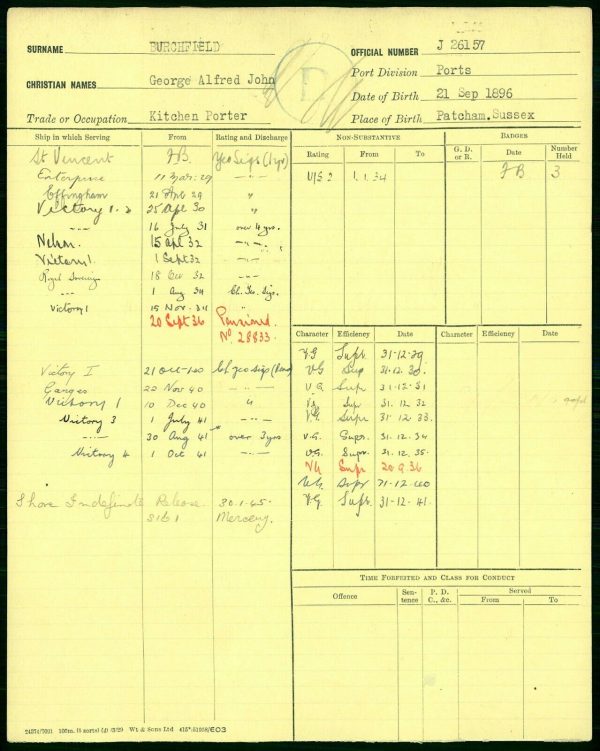 SURNAME BURCHFIELD OFFICIAL NUMBER J 26157
CHRISTIAN NAMES George Alfred John Port Division Ports
Date of Birth 21 Sep 1896
Trade or Occupation Kitchen Porter Place of Birth Patcham.Sussex
D
Ship in which Serving From Rating and Discharge
St Vincent F.B. Yeo Sigs (1 yr)
Enterprise 11 Mar. 29 -"-
Effingham 21 Apl 29 "
Victory 1. 25 Apl 30 "
-"- 16 July 31 over 4 yrs.
Nelson. 15 Apl 32 -"-
Victory 1. 1 Sept 32 -"-
Royal Sovereign 18 Oct 32 -"-
-"- 1 Aug 34 Ch. Yeo. Sigs.
Victory 1 15 Nov. 34 "
20 Sept 36 Pensioned.
No 28833.
Victory I 21 Oct 40 Ch Yeo Sigs (Pens)
Ganges 22 Nov 40 -"-
Victory 1 10 Dec 40 "
Victory 3 1 July 41 -"-
-"- 30 Aug 41 over 3 yrs
Victory 4 1 Oct 41 -"-
Shore Indefinite Release. 30.1.45.
Mercury.
NON-SUBSTANTIVE
Rating From To
V/S 2 1.1.34
BADGES
G. D. or R. Date Number Held
FB 3
Character Efficiency Date
VG Supr. 31-12-29.
VG Sup 31.12.30.
VG Sup 31.12.31
VG Sup 31.12 32
V.G. Supr 31.12.33.
V.G. Supr. 31.12.34
V.G. Supr. 31.12.35.
VG Supr 20.9.36
VG Supr 31-12-40
V.G Supr. 31-12-41.
Character Efficiency Date
TIME FORFEITED AND CLASS FOR CONDUCT
Offence Sentence P. D. C., &c. Served
From To
Wt & Sons Ltd